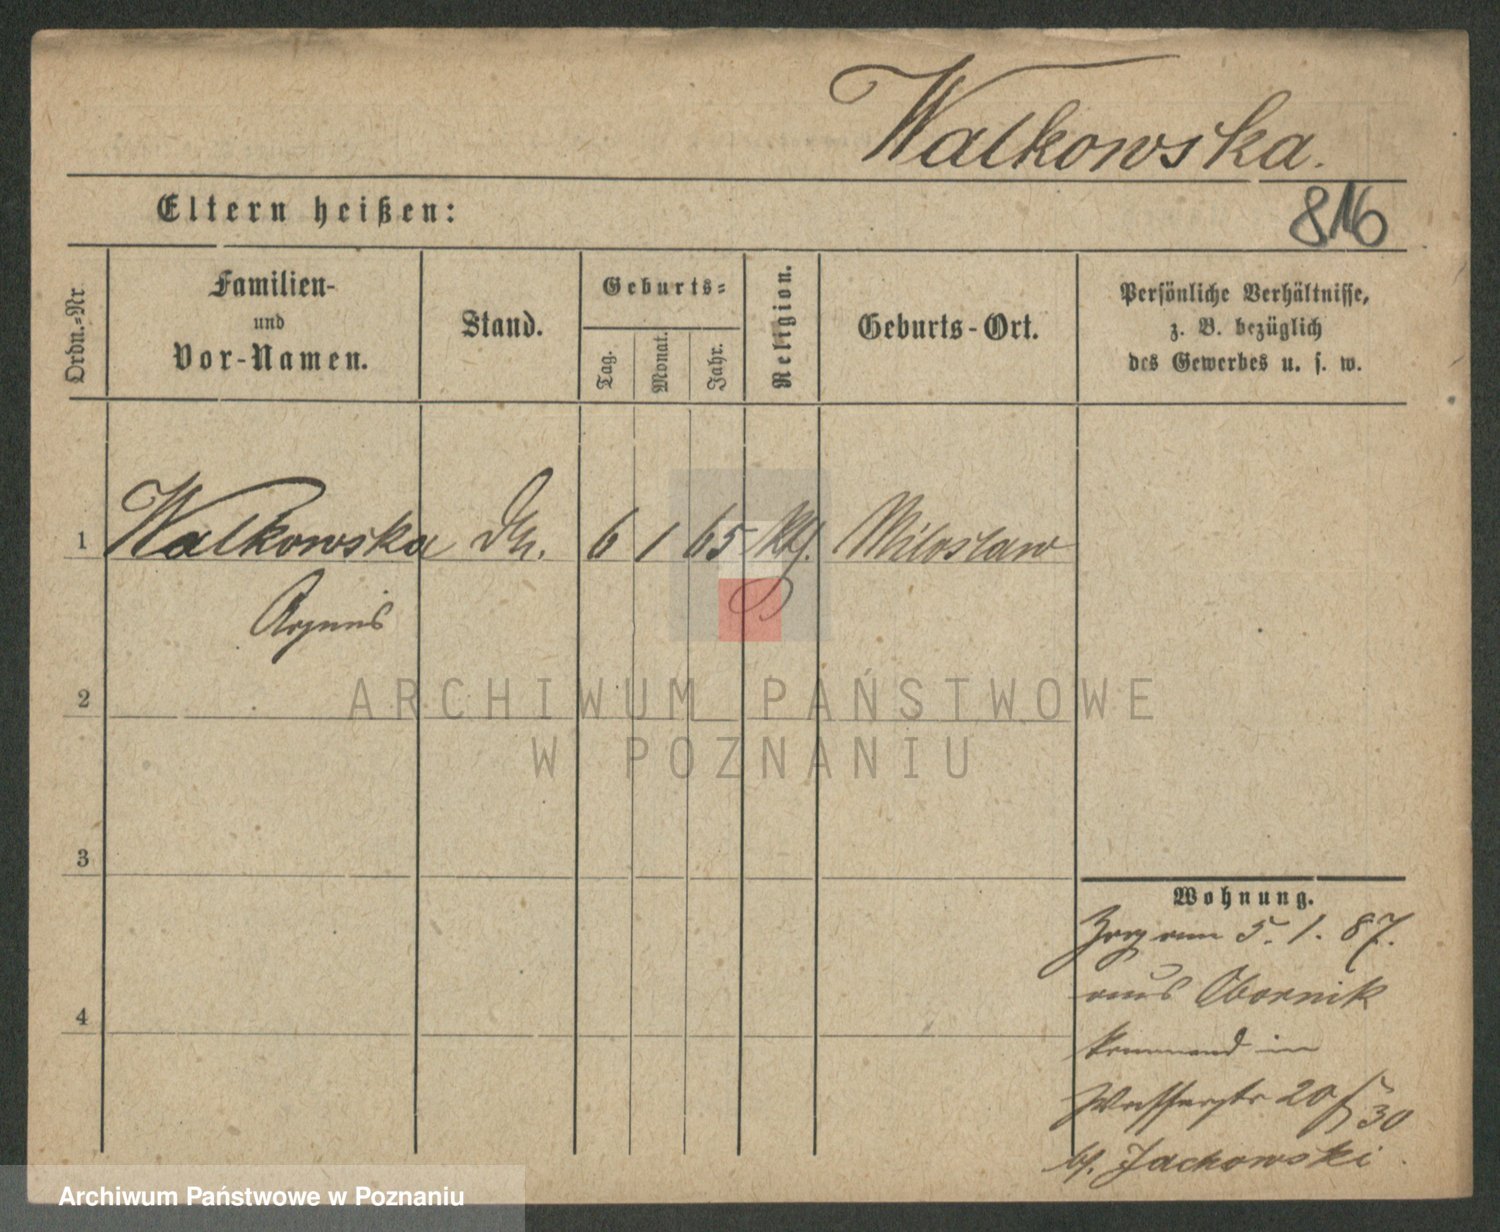 Walkowska.
816
Eltern heißen:
Ordn.-Nr.
Familien-
und
Vor-Namen.
Stand.
Geburts-
Tag.
Monat.
Jahr.
Religion.
Geburts-Ort.
Persönliche Verhältnisse,
z. B. bezüglich
des Gewerbes u. s. w.
1 Walkowska 6 1 65 Miloslaw
Agnes
2
3
4
Wohnung.
Zog am 5. 1. 87.
aus Obornik
kommend in
Wasserstr 20
30
b/. Jackowski.
ARCHIWUM PAŃSTWOWE
W POZNANIU
Archiwum Państwowe w Poznaniu